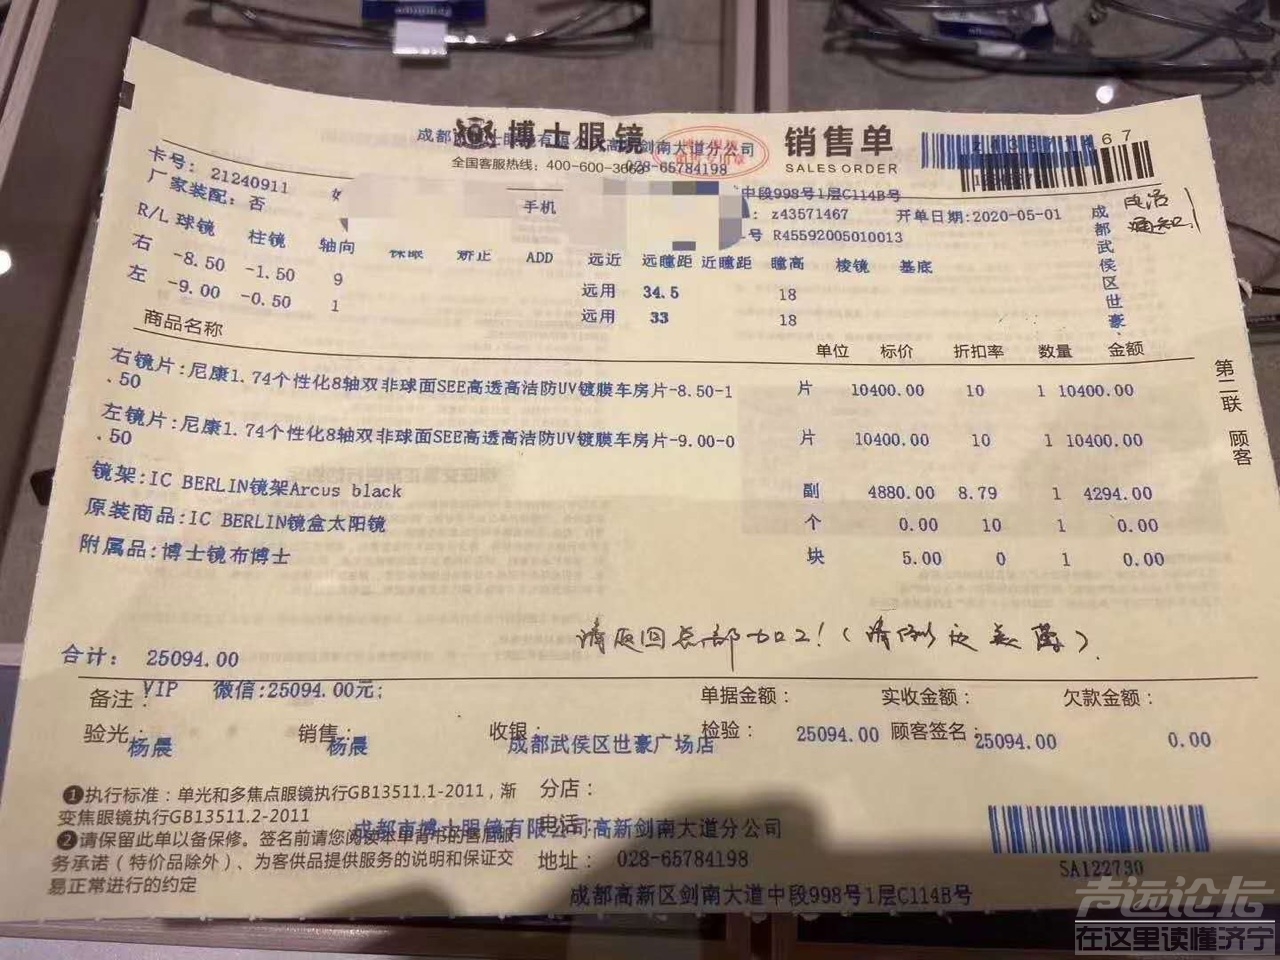 博士眼镜
成都市博士眼镜有限公司高新剑南大道分公司
销售单
SALES ORDER
全国客服热线：400-600-3663
028-65784198
z43571467
卡号：21240911
手机
中段998号1层C114B号
厂家装配：否
z43571467
开单日期:2020-05-01
号 R45592005010013
成都武侯区世豪
R/L 球镜 柱镜 轴向 裸眼 矫正 ADD 远近 远瞳距 近瞳距 瞳高 棱镜 基底
右 -8.50 -1.50 9 远用 34.5 18
左 -9.00 -0.50 1 远用 33 18
商品名称 单位 标价 折扣率 数量 金额
右镜片:尼康1.74个性化8轴双非球面SEE高透高洁防UV镀膜车房片-8.50-1 片 10400.00 10 1 10400.00
.50
左镜片:尼康1.74个性化8轴双非球面SEE高透高洁防UV镀膜车房片-9.00-0 片 10400.00 10 1 10400.00
.50
镜架:IC BERLIN镜架Arcus black 副 4880.00 8.79 1 4294.00
原装商品:IC BERLIN镜盒太阳镜 个 0.00 10 1 0.00
附属品:博士镜布博士 块 5.00 0 1 0.00
第二联 顾客
请返回总部加工！
合计： 25094.00
备注： VIP 微信:25094.00元;
单据金额： 实收金额： 欠款金额：
验光： 杨晨 销售： 杨晨 收银： 成都武侯区世豪广场店 检验： 25094.00 顾客签名： 25094.00 0.00
❶执行标准：单光和多焦点眼镜执行GB13511.1-2011，渐
变焦眼镜执行GB13511.2-2011
❷请保留此单以备保修。签名前请您阅读本单背书的售后服
务承诺（特价品除外）、为客供品提供服务的说明和保证交
易正常进行的约定
分店：
电话：
成都市博士眼镜有限公司高新剑南大道分公司
地址： 028-65784198
成都高新区剑南大道中段998号1层C114B号
SA122730
声远论坛
在这里读懂济宁